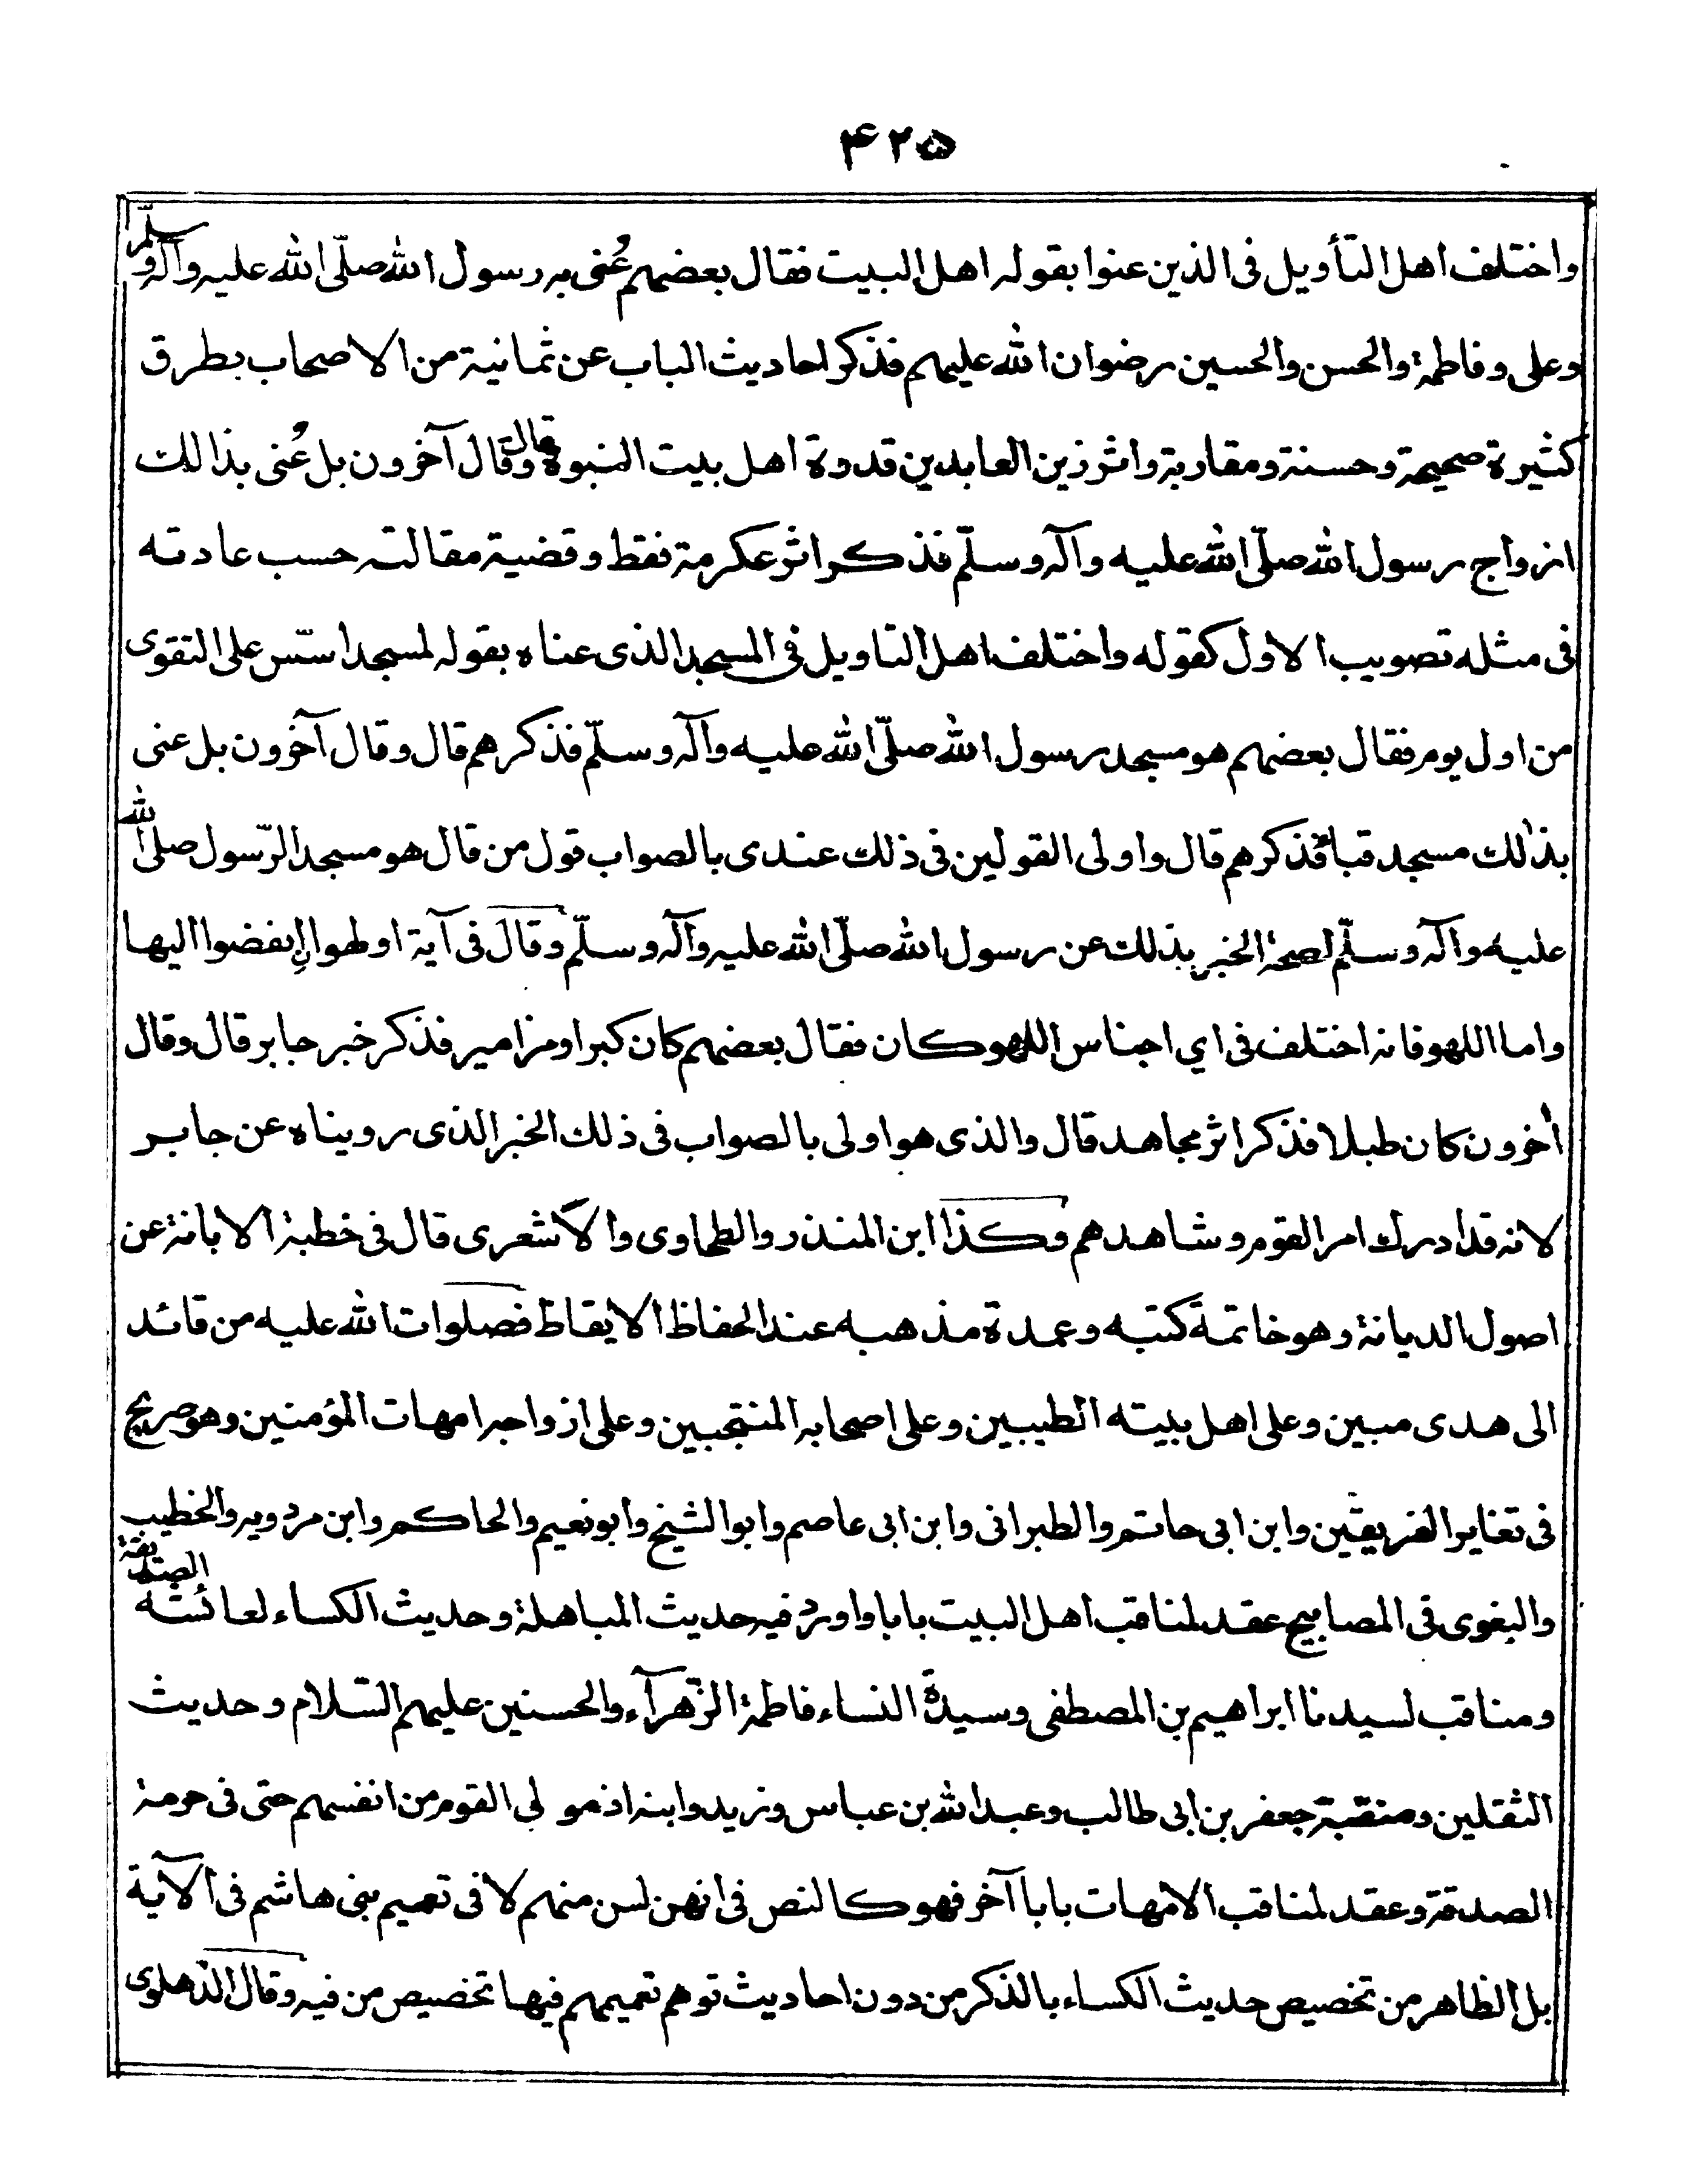 ۴۲۵
واختلف اهل التأويل فى الذين عنوا بقوله اهل البيت فقال بعضهم عُنى به رسول الله صلّى الله عليه وآله وسلّم
وعلى وفاطمة والحسن والحسين رضوان الله عليهم فذكر احاديث الباب عن ثمانية من الاصحاب بطرق
كثيرة صحيحة وحسنة ومقاربة واثر زين العابدين قدوة اهل بيت النبوة قال وقال آخرون بل عُنى بذالك
ازواج رسول الله صلّى الله عليه وآله وسلّم فذكر اثر عكرمة فقط وقضية مقالته حسب عادته
فى مثله تصويب الاول كقوله واختلف اهل التاويل فى المسجد الذى عناه بقوله لمسجد اسّس على التقوى
من اول يوم فقال بعضهم هو مسجد رسول الله صلّى الله عليه وآله وسلّم فذكرهم قال وقال آخرون بل عنى
بذلك مسجد قباء فذكرهم قال واولى القولين فى ذلك عندى بالصواب قول من قال هو مسجد الرّسول صلى الله
عليه وآله وسلّم لصحة الخبر بذلك عن رسول الله صلّى الله عليه وآله وسلّم وقال فى آية اولهوا انفضوا اليها
واما اللهو فانه اختلف فى اي اجناس اللهو كان فقال بعضهم كان كبرا ومزامير فذكر خبر جابر قال وقال
أخرون كان طبلا فذكر اثر مجاهد قال والذى هو اولى بالصواب فى ذلك الخبر الذى رويناه عن جابر
لانه قد ادرك امر القوم وشاهدهم وكذا ابن المنذر والطحاوى والاشعرى قال فى خطبة الابانة عن
اصول الديانة وهو خاتمة كتبه وعمدة مذهبه عند الحفاظ الايقاظ فصلوات الله عليه من قائد
الى هدى مبين وعلى اهل بيته الطيبين وعلى اصحابه المنتجبين وعلى ازواجه امهات المؤمنين وهو صريح
فى تغاير الفريقين وابن ابى حاتم والطبرانى وابن ابى عاصم وابو الشيخ وابو نعيم والحاكم وابن مردويه والخطيب
والبغوى فى المصابيح عقد لمناقب اهل البيت بابا واورد فيه حديث المباهلة وحديث الكساء لعائشه الصديقة
ومناقب لسيدنا ابراهيم بن المصطفى وسيدة النساء فاطمة الزّهرآء والحسنين عليهم السّلام وحديث
الثقلين ومنقبة جعفر بن ابى طالب وعبد الله بن عباس وزيد وابنه اذ مولى القوم من انفسهم حتى فى حرمة
الصدقة وعقد لمناقب الامهات بابا آخر فهو كالنص فى انهن لسن منهم لا فى تعميم بنى هاشم فى الآية
بل الظاهر من تخصيص حديث الكساء بالذكر من دون احاديث توهم تعميمهم فيها تخصيص من فيه وقال الدّهلوى